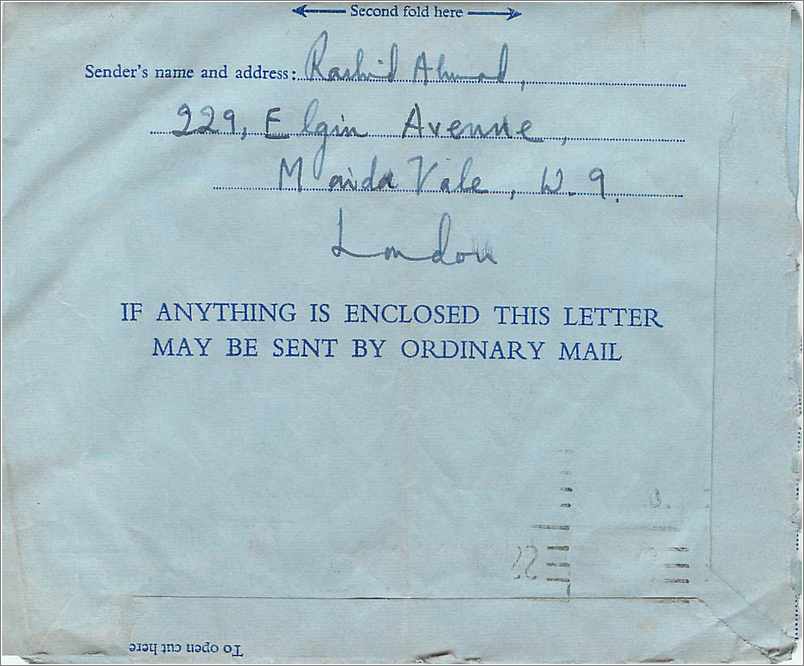 Second fold here
Sender's name and address: Rashid Ahmad,
229, Elgin Avenue,
Maida Vale, W. 9.
London
IF ANYTHING IS ENCLOSED THIS LETTER
MAY BE SENT BY ORDINARY MAIL
To open cut here